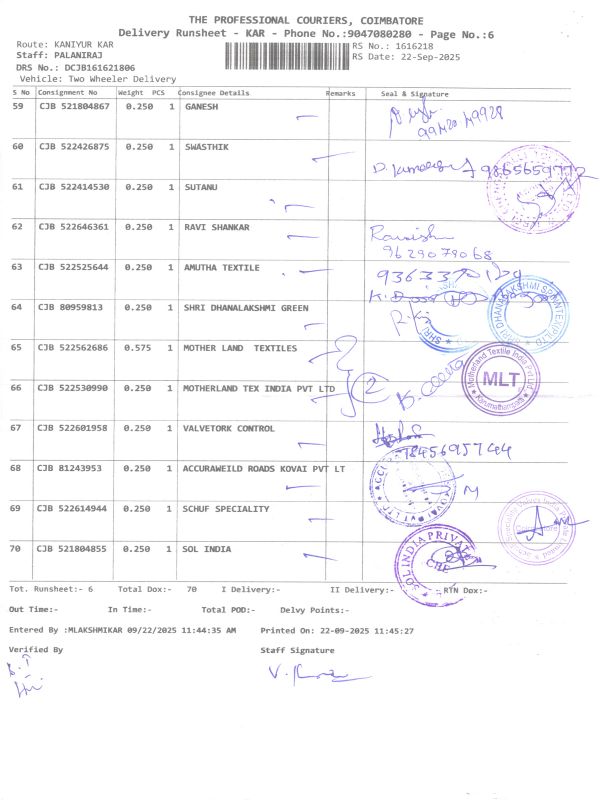 THE PROFESSIONAL COURIERS, COIMBATORE
Delivery Runsheet - KAR - Phone No.:9047080280 - Page No.:6
Route: KANIYUR KAR
RS No.: 1616218
Staff: PALANIRAJ
RS Date: 22-Sep-2025
DRS No.: DCJB161621806
Vehicle: Two Wheeler Delivery
S No Consignment No Weight PCS Consignee Details Remarks Seal & Signature
59 CJB 521804867 0.250 1 GANESH
60 CJB 522426875 0.250 1 SWASTHIK
9865659772
61 CJB 522414530 0.250 1 SUTANU
62 CJB 522646361 0.250 1 RAVI SHANKAR
9629079068
63 CJB 522525644 0.250 1 AMUTHA TEXTILE
64 CJB 80959813 0.250 1 SHRI DHANALAKSHMI GREEN
65 CJB 522562686 0.575 1 MOTHER LAND TEXTILES
Motherland Textile India Pvt Ltd
MLT
Karumathampatti
66 CJB 522530990 0.250 1 MOTHERLAND TEX INDIA PVT LTD
2
67 CJB 522601958 0.250 1 VALVETORK CONTROL
68 CJB 81243953 0.250 1 ACCURAWEILD ROADS KOVAI PVT LT
69 CJB 522614944 0.250 1 SCHUF SPECIALITY
70 CJB 521804855 0.250 1 SOL INDIA
SOL INDIA PRIVATE
Tot. Runsheet:- 6 Total Dox:- 70 I Delivery:- II Delivery:- RTN Dox:-
Out Time:- In Time:- Total POD:- Delvy Points:-
Entered By :MLAKSHMIKAR 09/22/2025 11:44:35 AM Printed On: 22-09-2025 11:45:27
Verified By Staff Signature